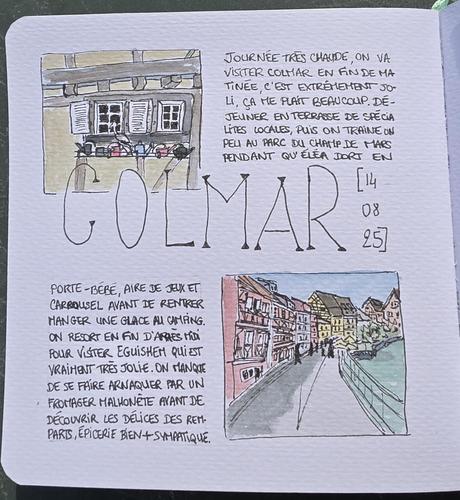 JOURNÉE TRÈS CHAUDE, ON VA
VISITER COLMAR EN FIN DE MA
TINÉE, C'EST EXTRÊMEMENT JO-
LI, ÇA ME PLAIT BEAUCOUP. DÉ-
JEUNER EN TERRASSE DE SPÉCIA
LITÉS LOCALES, PUIS ON TRAINE UN
PEU AU PARC DU CHAMP DE MARS
PENDANT QU'ÉLÉA DORT EN
COLMAR
[14
08
25]
PORTE-BÉBÉ, AIRE DE JEUX ET
CARROUSEL AVANT DE RENTRER
MANGER UNE GLACE AU CAMPING.
ON RESORT EN FIN D'APRÈS MIDI
POUR VISITER EGUISHEM QUI EST
VRAIMENT TRÈS JOLIE. ON MANQUE
DE SE FAIRE ARNAQUER PAR UN
FROMAGER MALHONÊTE AVANT DE
DÉCOUVRIR LES DÉLICES DES REM-
PARTS, ÉPICERIE BIEN + SYMPATIQUE.